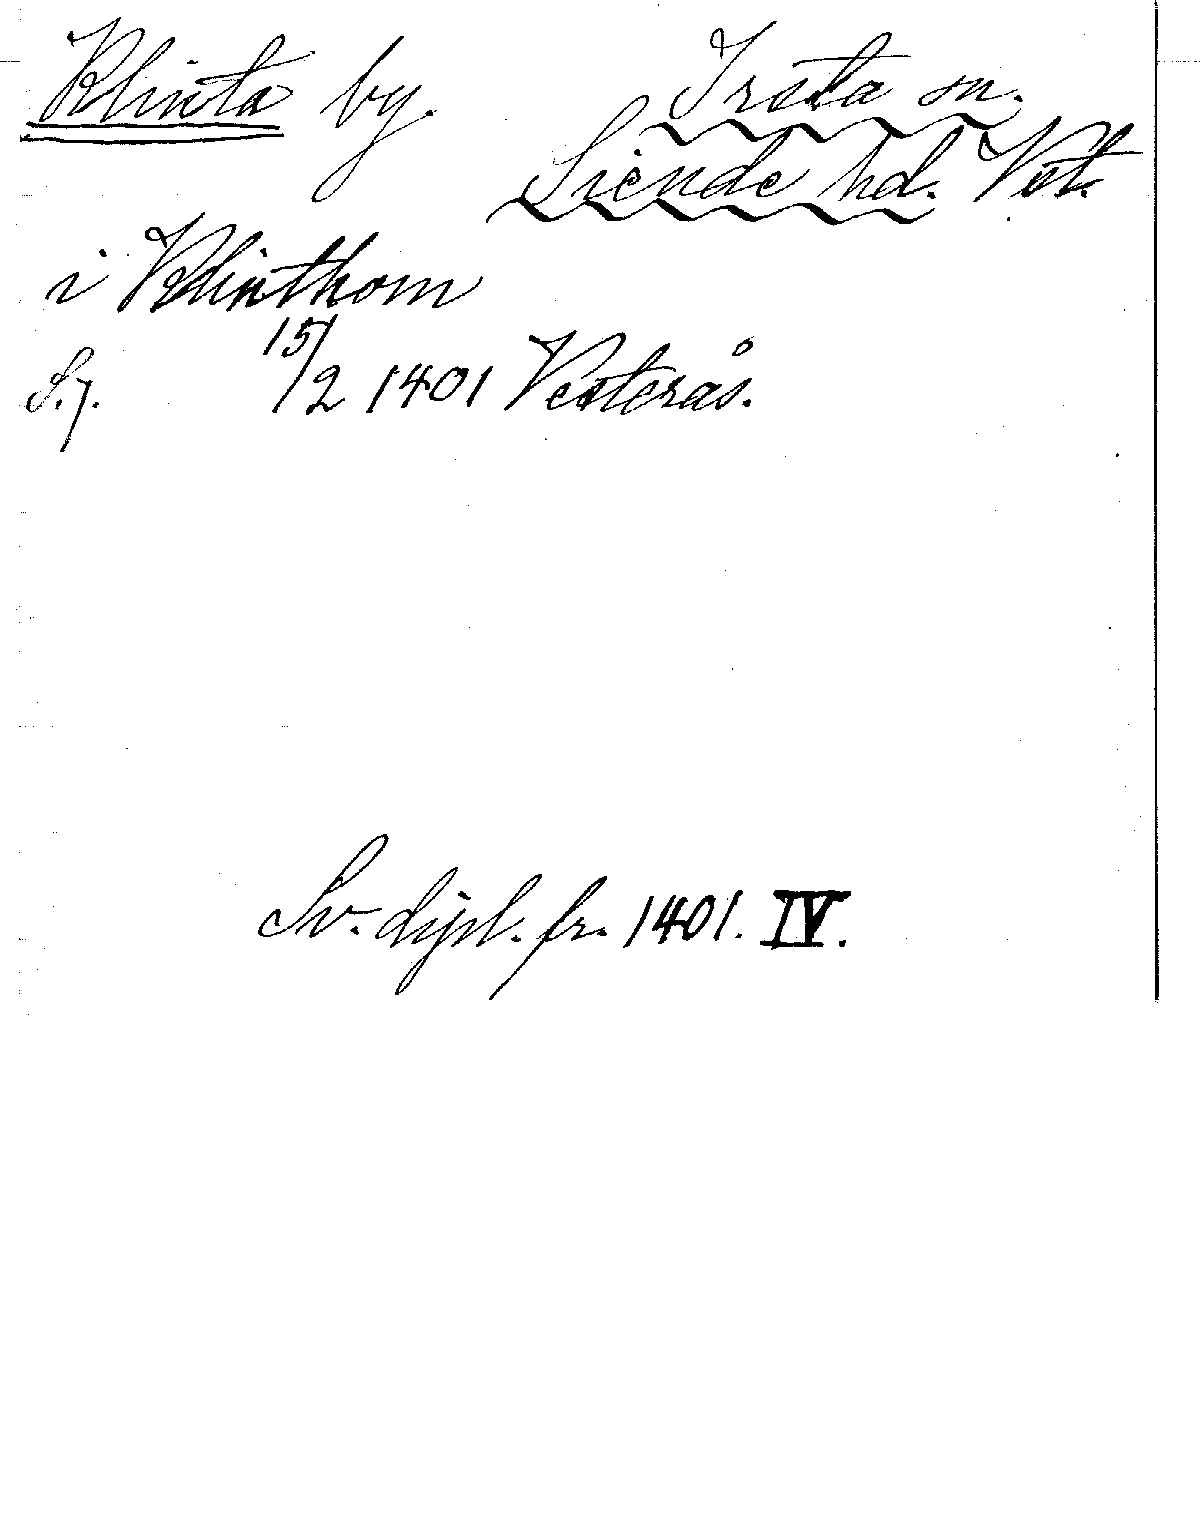 Klinta by. Irsta sn.
Siende hd. Vst.
i Klinthom
S. 7. 15/2 1401 Vesterås.
Sv. dipl. fr. 1401. IV.